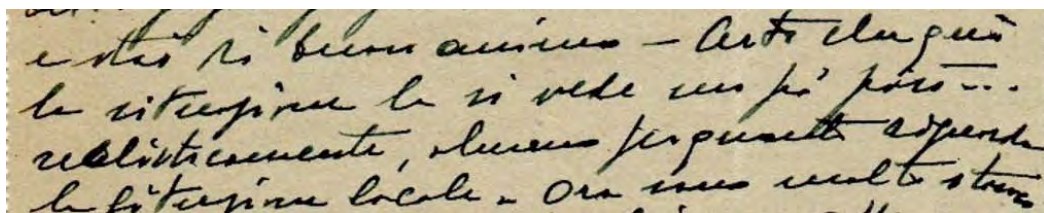 e stai di buon animo - Certo che qui
la situazione la si vede un pò più ...
realisticamente, almeno per quanto riguarda
la situazione locale. Ora sono molto stanco